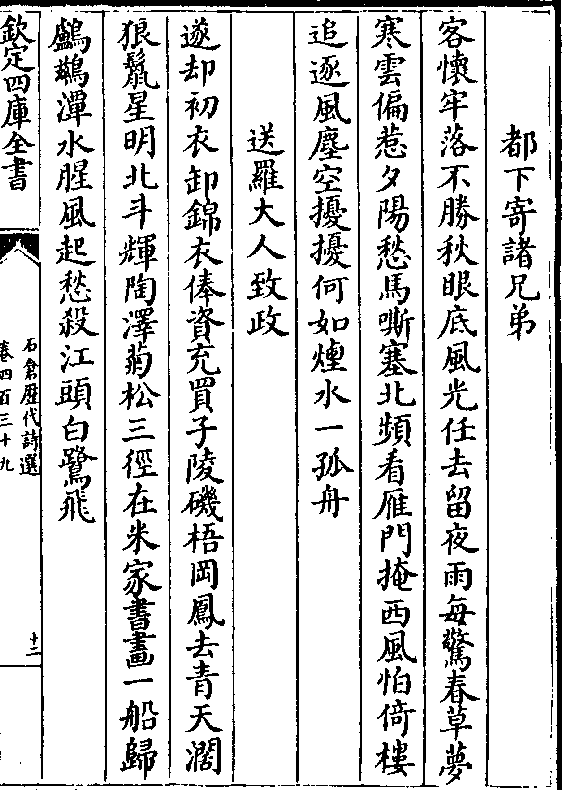 都下寄諸兄弟
客懷牢落不勝秋眼底風光任去留夜雨每驚春草夢
寒雲偏惹夕陽愁馬嘶塞北頻看雁門掩西風怕倚樓
追逐風塵空擾擾何如煙水一孤舟
送羅大人致政
遂却初衣卸錦衣俸資充買子陵磯梧岡鳳去青天濶
狼鬛星明北斗輝陶澤菊松三徑在米家書畫一船歸
鸕鷀潭水腥風起愁殺江頭白鷺飛
欽定四庫全書
石倉歷代詩選
卷四百三十九
十二